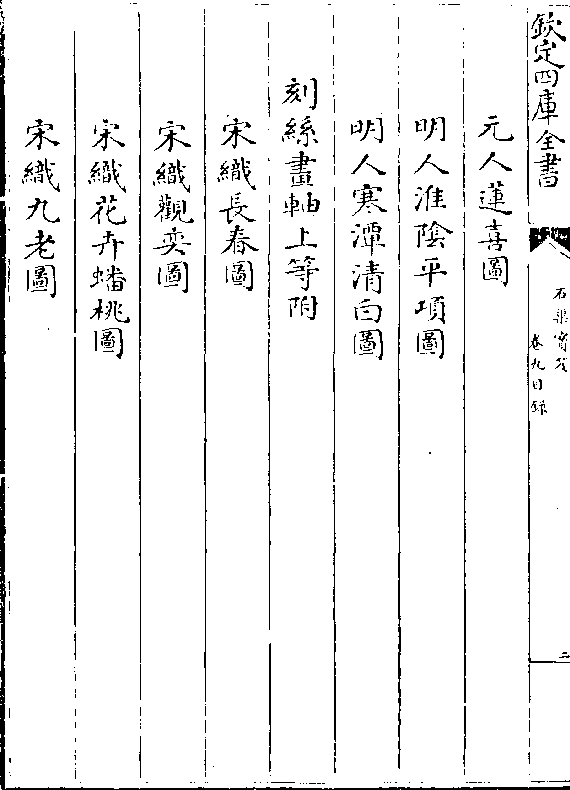 欽定四庫全書
石渠寳笈
卷九目録
二
元人蓮喜圖
明人淮陰平項圖
明人寒潭清白圖
刻絲畫軸上等附
宋織長春圖
宋織觀奕圖
宋織花卉蟠桃圖
宋織九老圖